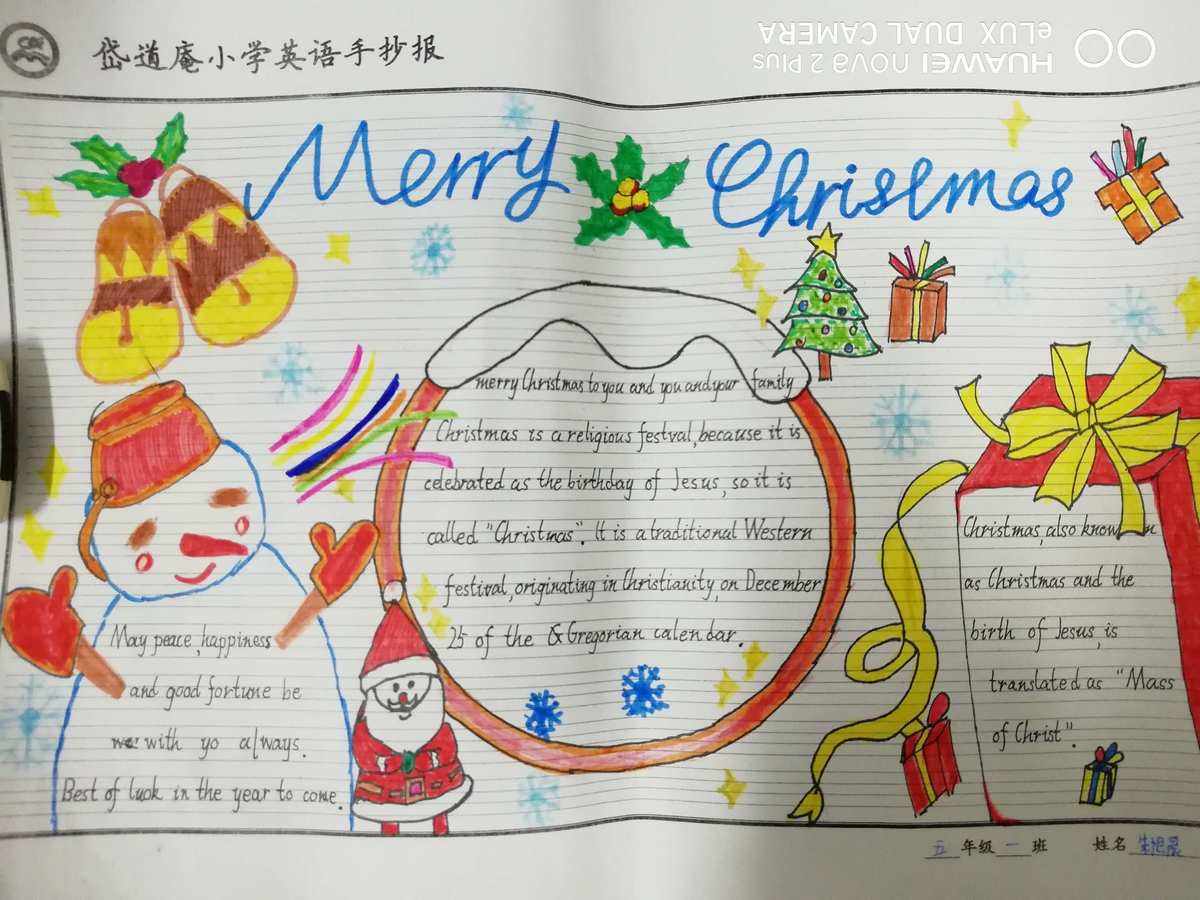 岱道庵小学英语手抄报
HUAWEI nova 2 Plus
eLUX DUAL CAMERA
Merry Christmas
merry Christmas to you and you and your family
Christmas is a religious festval, because it is
celebrated as the birthday of Jesus, so it is
called "Christmas". It is a traditional Western
festival, originating in Christianity, on December
25 of the & Gregorian calendar.
May peace, happiness
and good fortune be
with yo always.
Best of luck in the year to come.
Christmas, also know
as Christmas and the
birth of Jesus, is
translated as "Mass
of Christ".
五 年级 一 班 姓名